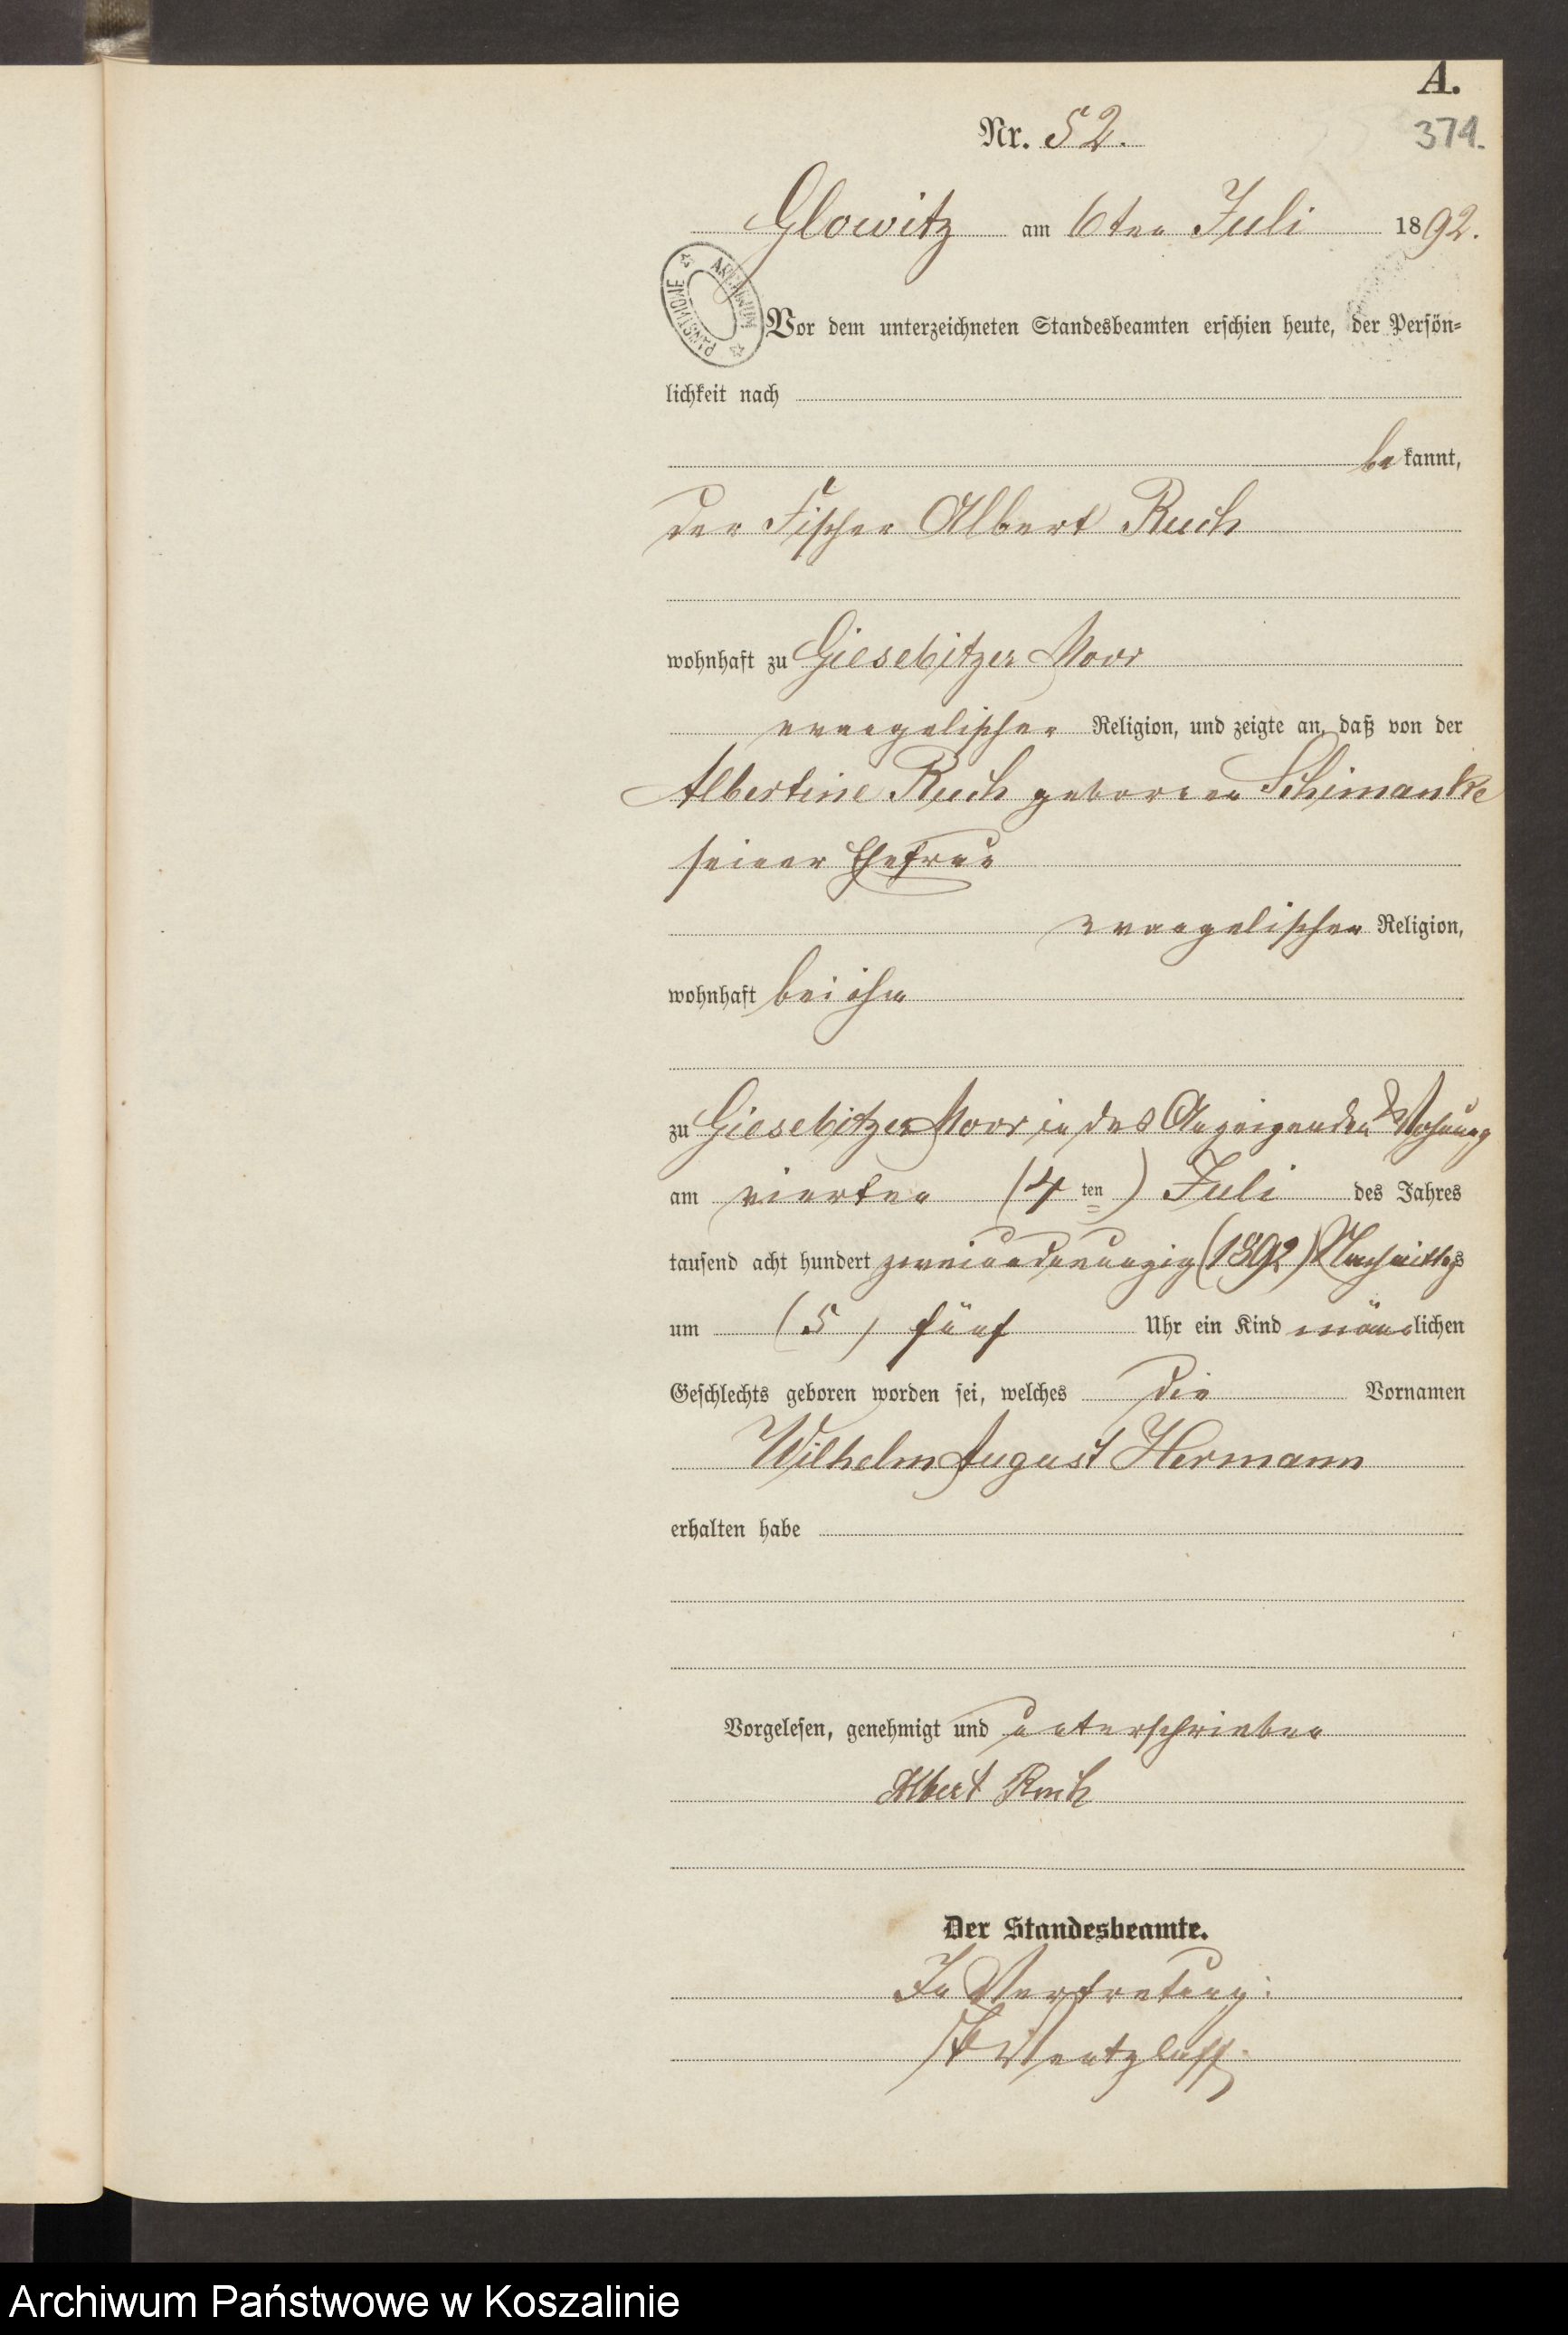 A.
Nr. 52.
371.
Glowitz am 6ten Juli 1892.
ARCHIWUM PAŃSTWOWE
Vor dem unterzeichneten Standesbeamten erschien heute, der Persön-
lichkeit nach
bekannt,
der Fischer Albert Ruch
wohnhaft zu Giesebitzer Moor
evangelischer Religion, und zeigte an, daß von der
Albertine Ruch geborenen Schimanke
seiner Ehefrau
evangelischer Religion,
wohnhaft bei ihm
zu Giesebitzer Moor in des Anzeigenden Wohnung
am vierten (4ten) Juli des Jahres
tausend acht hundert zweiundneunzig (1892) Nachmittags
um (5) fünf Uhr ein Kind männlichen
Geschlechts geboren worden sei, welches die Vornamen
Wilhelm August Hermann
erhalten habe
Vorgelesen, genehmigt und unterschrieben
Albert Ruch
Der Standesbeamte.
In Vertretung:
Wentzlaff.
Archiwum Państwowe w Koszalinie